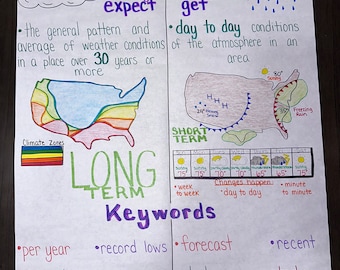 expect get
• the general pattern and
average of weather conditions
in a place over 30 years or
more
• day to day conditions
of the atmosphere in an
area
80°
Sunny
HHH
Freezing
Rain
Climate Zones
LONG
TERM
SHORT
TERM
75° 75° 75° 70° 65° 65° 75°
• week
to week
Changes happen:
• day to day
• minute
to minute
Keywords
• per year
• record lows
• forecast
• recent